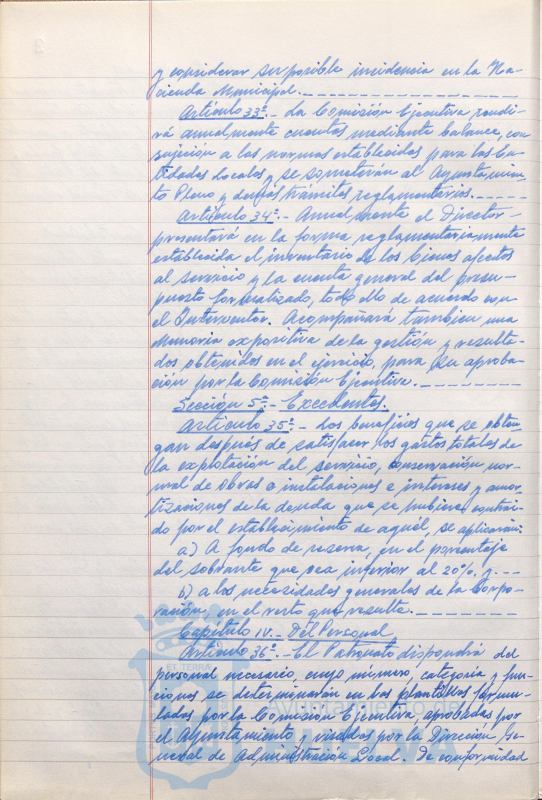 y considerar su posible incidencia en la Ha-
cienda Municipal.
Artículo 33º.- La Comisión Ejecutiva rendi-
rá anualmente cuentas mediante balance, con
sujeción a las normas establecidas para las En-
tidades Locales y se someterán al Ayuntamien-
to Pleno y demás trámites reglamentarios.
Artículo 34º.- Anualmente el Director
presentará en la forma reglamentariamente
establecida el inventario de los bienes afectos
al servicio y la cuenta general del presu-
puesto formalizado, todo ello de acuerdo con
el Interventor. Acompañará tambien una
Memoria expositiva de la gestión y resulta-
dos obtenidos en el ejercicio, para su aproba-
ción por la Comisión Ejecutiva.
Sección 5ª.- Excedentes.
Artículo 35º.- Los beneficios que se obten-
gan después de satisfacer los gastos totales de
la explotación del servicio, conservación nor-
mal de obras e instalaciones e intereses y amor-
tizaciones de la deuda que se hubiere contraí-
do por el establecimiento de aquél, se aplicarán:
a) A fondo de reserva, en el porcentaje
del sobrante que sea inferior al 20%, y.---
b) a las necesidades generales de la Corpo-
ración, en el resto que resulte.
Capítulo IV.- Del Personal
Artículo 36º.- El Patronato dispondrá del
personal necesario, cuyo número, categoría y fun-
ciones se determinarán en las plantillas formu-
ladas por la Comisión Ejecutiva, aprobadas por
el Ayuntamiento y visadas por la Dirección Ge-
neral de Administración Local. De conformidad
ET TERRA
Ayuntamiento de
HUELVA